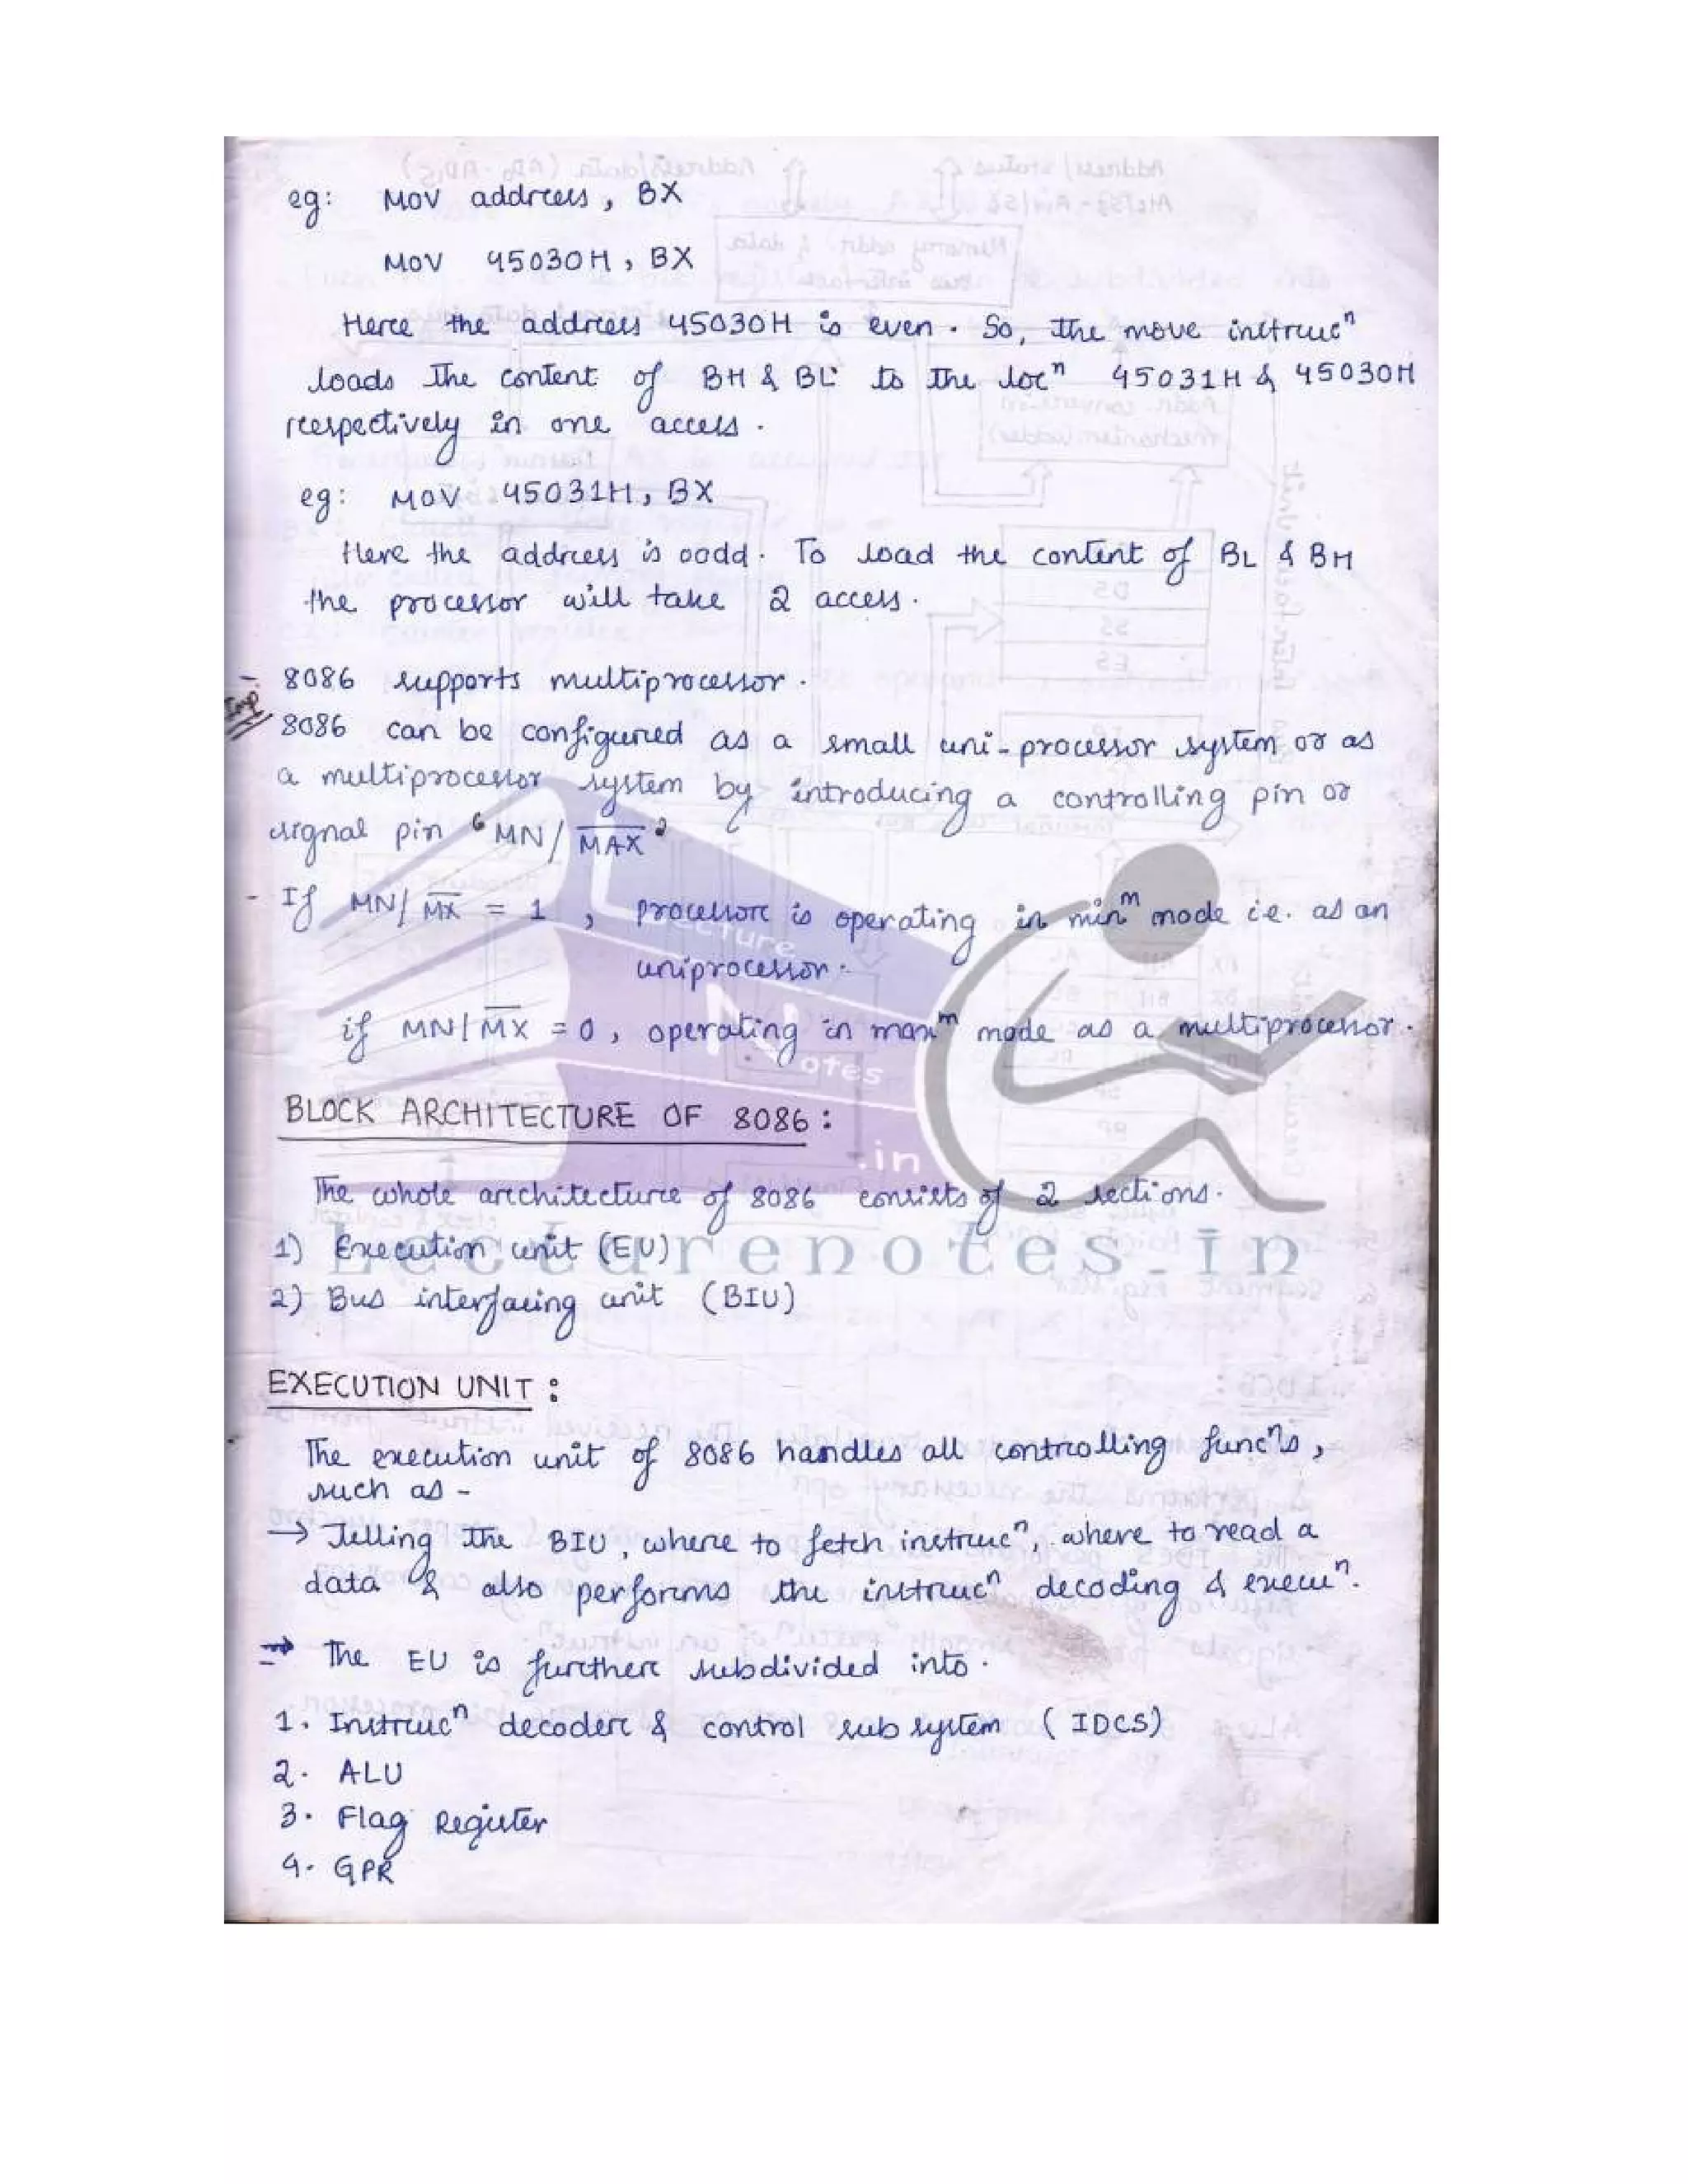 eg: MOV address, BX
MOV 45030H, BX
Here the address 45030H is even. So, the move instrucⁿ
loads the content of BH & BL to the locⁿ 45031H & 45030H
respectively in one access.
eg: MOV 45031H, BX
Here the address is oodd. To load the content of BL & BH
the processor will take 2 access.
- 8086 supports multiprocessor.
Imp
8086 can be configured as a small uni-processor system or as
a multiprocessor system by introducing a controlling pin or
signal pin 'MN/M̅A̅X̅'
- If MN/M̅X̅ = 1, processor is operating in minᵐ mode i.e. as an
uniprocessor.
if MN/M̅X̅ = 0, operating in maxᵐ mode as a multiprocessor.
BLOCK ARCHITECTURE OF 8086:
The whole architecture of 8086 consists of 2 sections.
1) Execution unit (EU)
2) Bus interfacing unit (BIU)
EXECUTION UNIT:
The execution unit of 8086 handles all controlling funcⁿs,
such as -
→ Telling the BIU, where to fetch instrucⁿ, where to read a
data & also performs the instrucⁿ decoding & execuⁿ.
→ The EU is further subdivided into.
1. Instrucⁿ decoder & control sub system (IDCS)
2. ALU
3. Flag Register
4. GPR
Lecture
Notes
.in
Lecturenotes.in